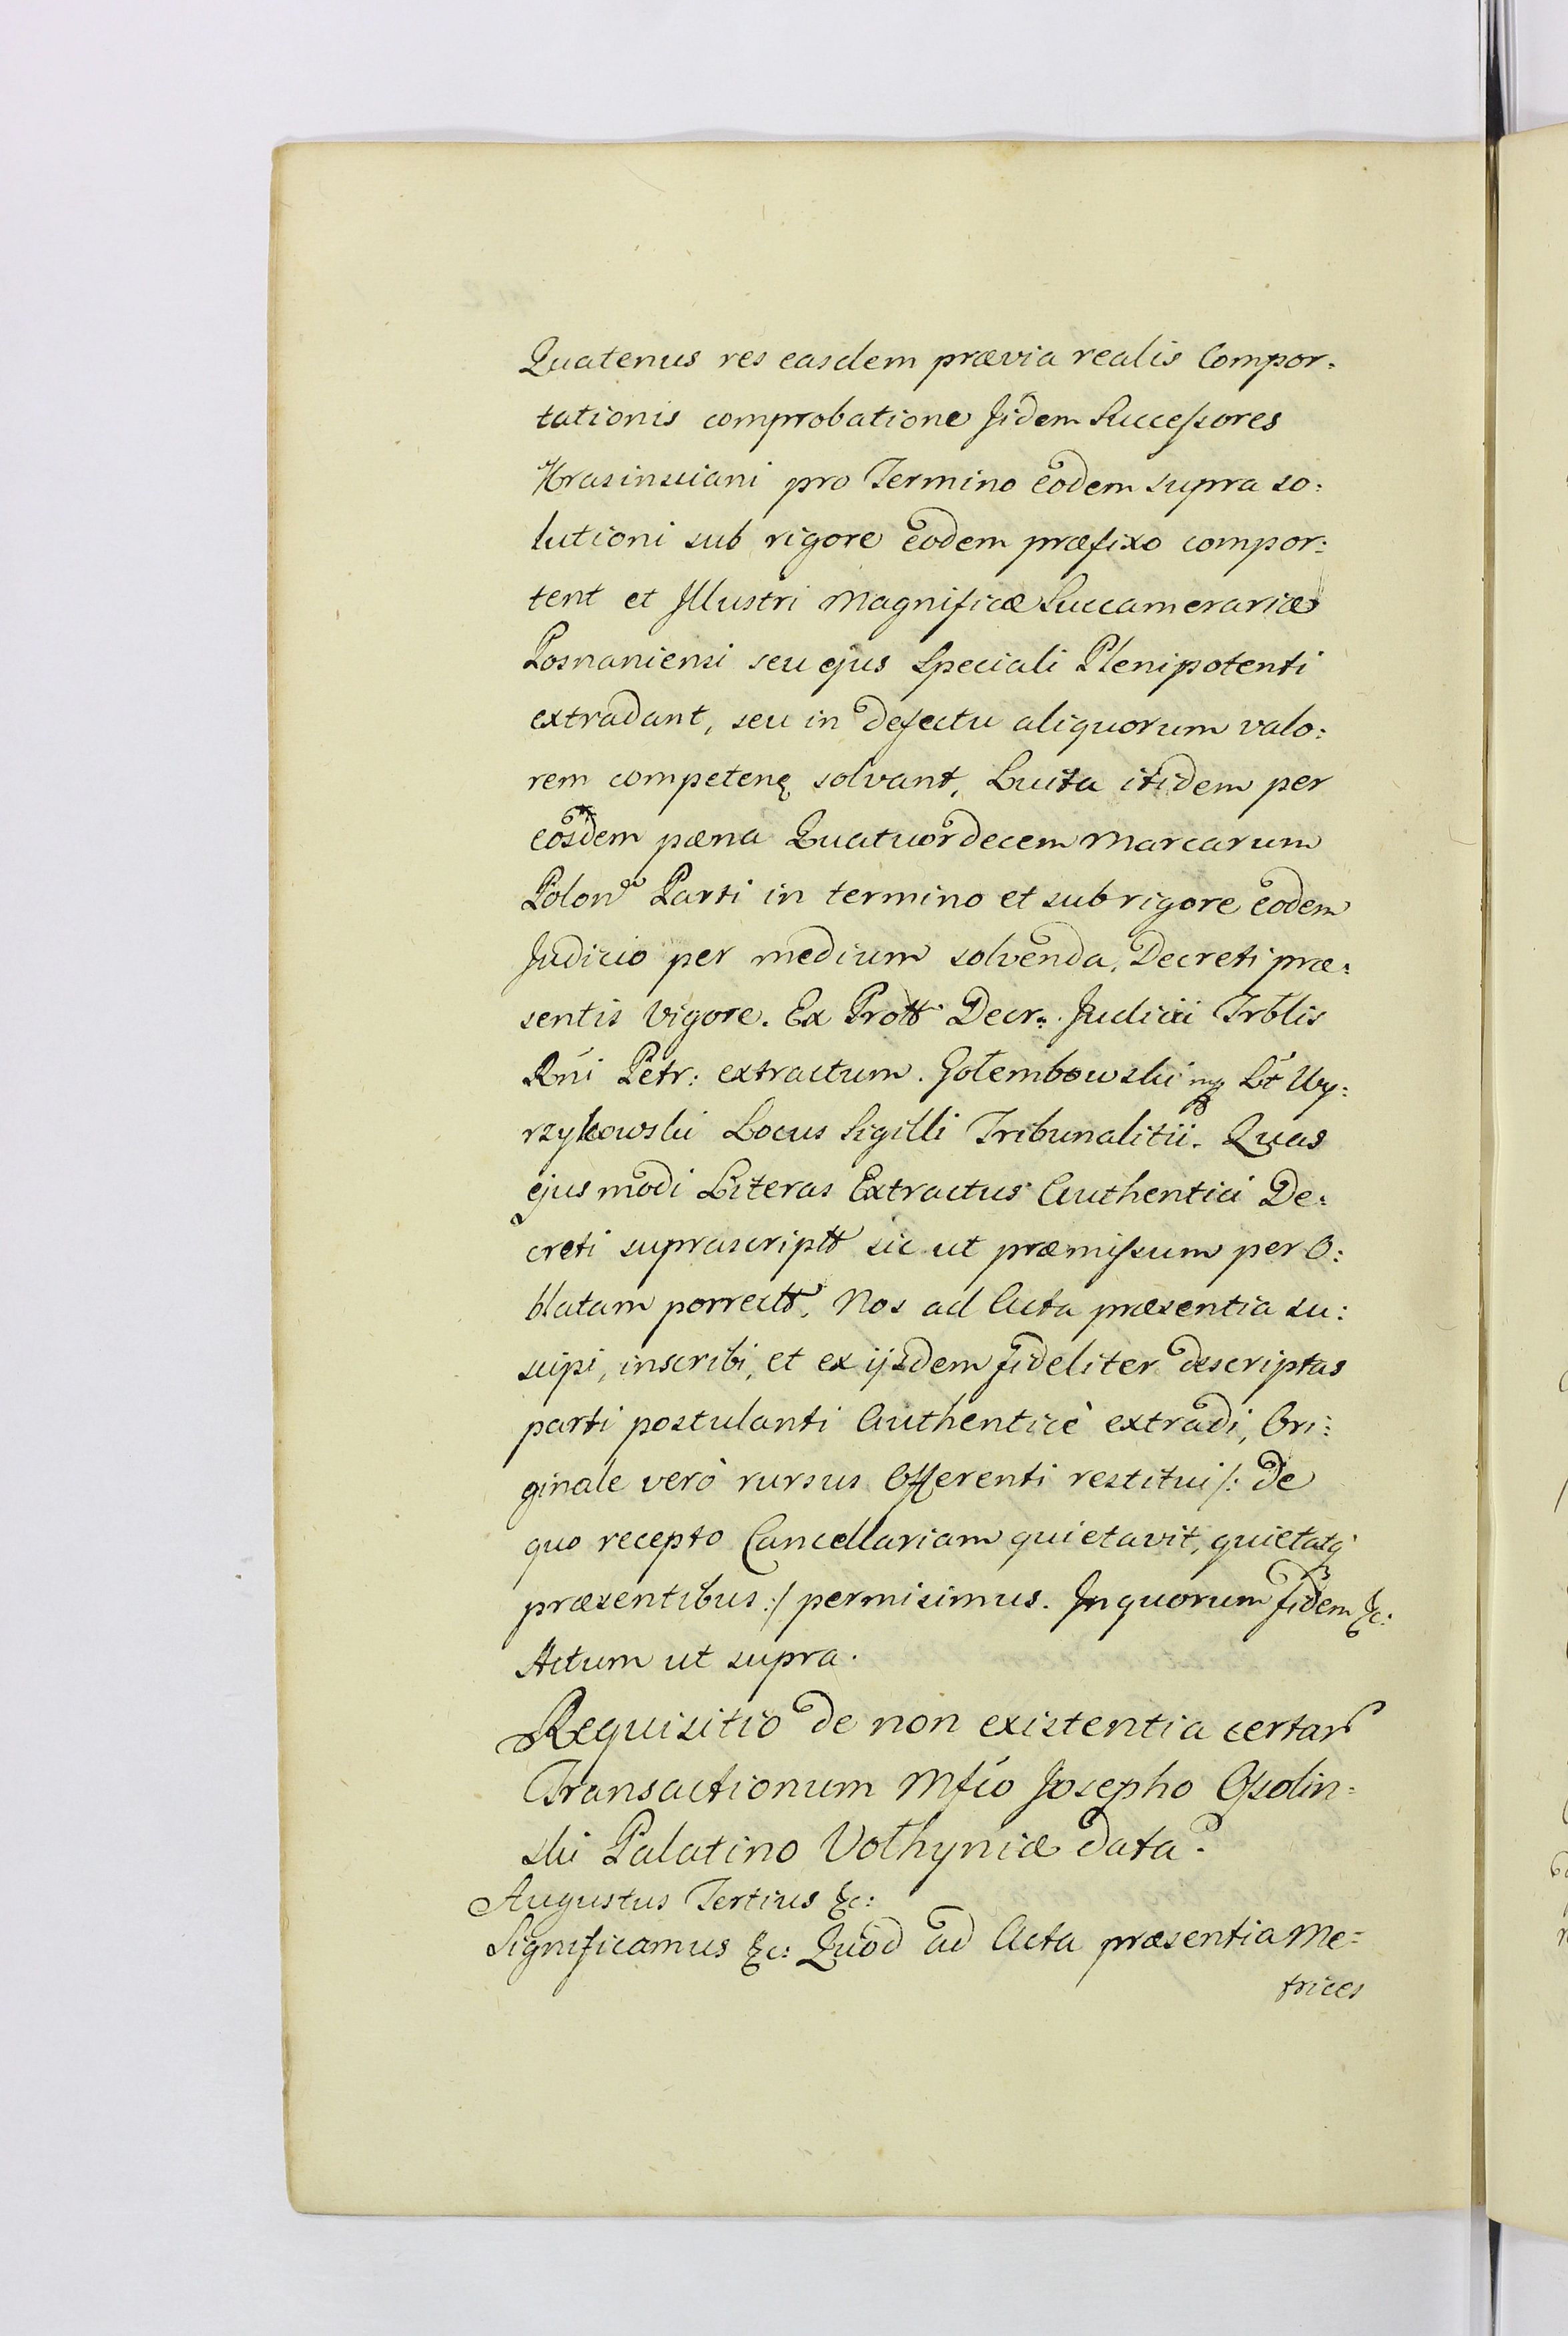 Quatenus res easdem prævia realis Compor:
tationis comprobatione Jidem Successores
Krasinsciani pro Termino eodem supra so:
lutioni sub rigore eodem præfixo compor:
tent et Jllustri Magnificæ Succamerariæ
Posnaniensi seu ejus Speciali Plenipotenti
extradant, seu in defectu aliquorum valo:
rem competenę solvant, Luita itidem per
eosdem pæna Quatuordecem Marcarum
Polon Parti in termino et sub rigore eodem
Judicio per medium solvenda, Decreti præ:
sentis Vigore. Ex Prott Decr: Judicii Trblis
Rni Petr: extractum. Gołembowski mp Lt Wy:
rzykowski Locus Sigilli Tribunalitii. Quas
ejusmodi Literas Extractus Authentici De:
creti suprascriptt sic ut præmissum per O:
blatam porrectt, Nos ad Acta præsentia su:
scipi, inscribi, et ex ijsdem fideliter descriptas
parti postulanti Authenticè extradi, Ori:
ginale verò rursus Offerenti restitui /: de
quo recepto Cancellariam quietavit, quietatq
præsentibus :/ permisimus. Jn quorum fidem &c:
Actum ut supra.
Requisitio de non existentia certar
Transactionum Mfico Josepho Ossolin:
ski Palatino Volhyniæ data.
Augustus Tertius &c:
Significamus &c: Quod ad Acta præsentia Me:
trices